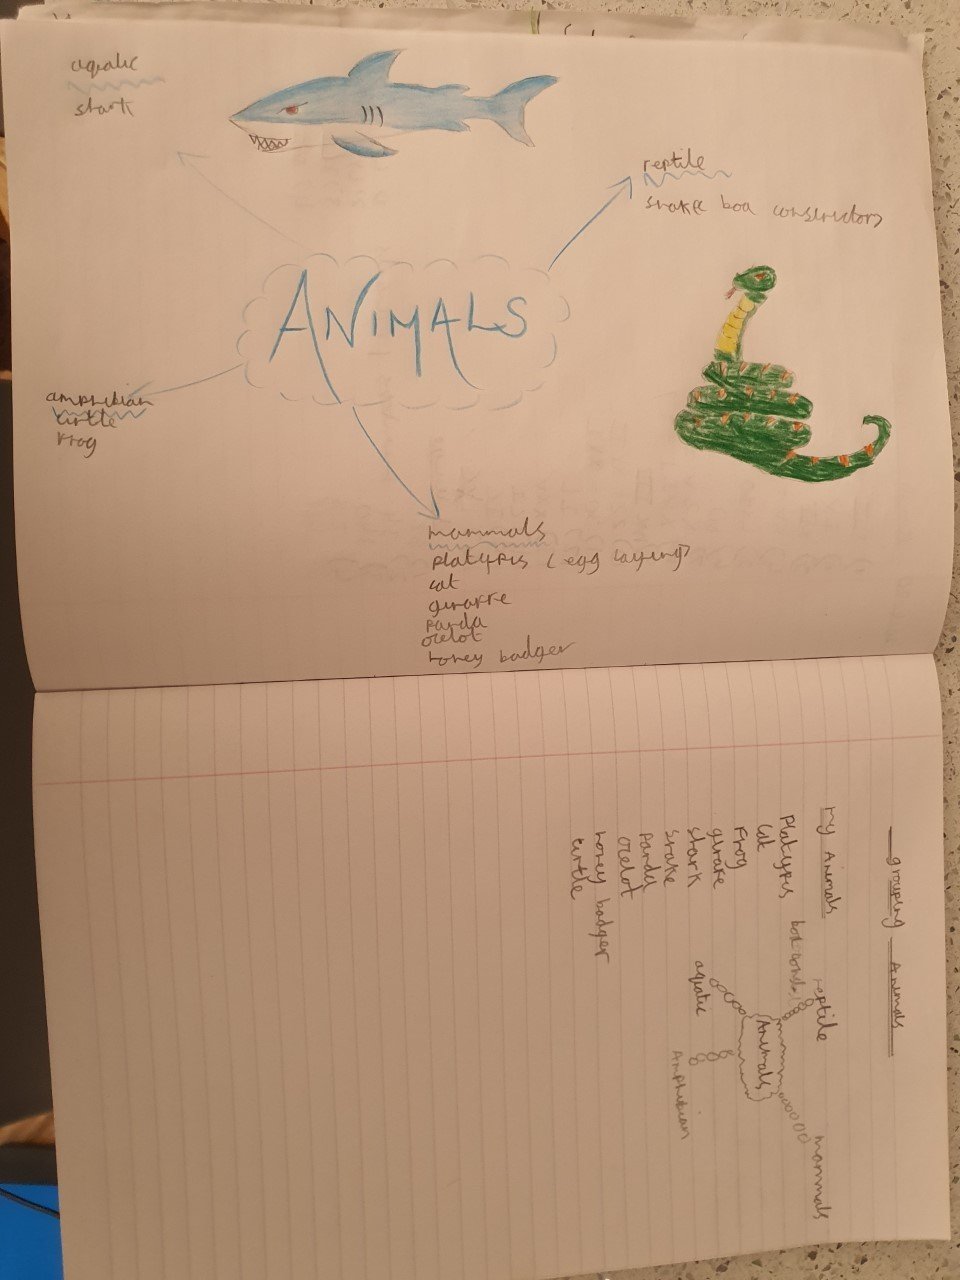 aquatic
shark
reptile
snake boa constructor
ANIMALS
amphibian
turtle
Frog
mammals
platypis (egg laying)
cat
girarre
panda
ocelot
honey badger
grouping Animals
my Animals
Platypis
cat
Frog
girare
shark
snake
Panda
ocelot
honey badger
turtle
reptile
mammals
Animals
aquatic
Amphibian